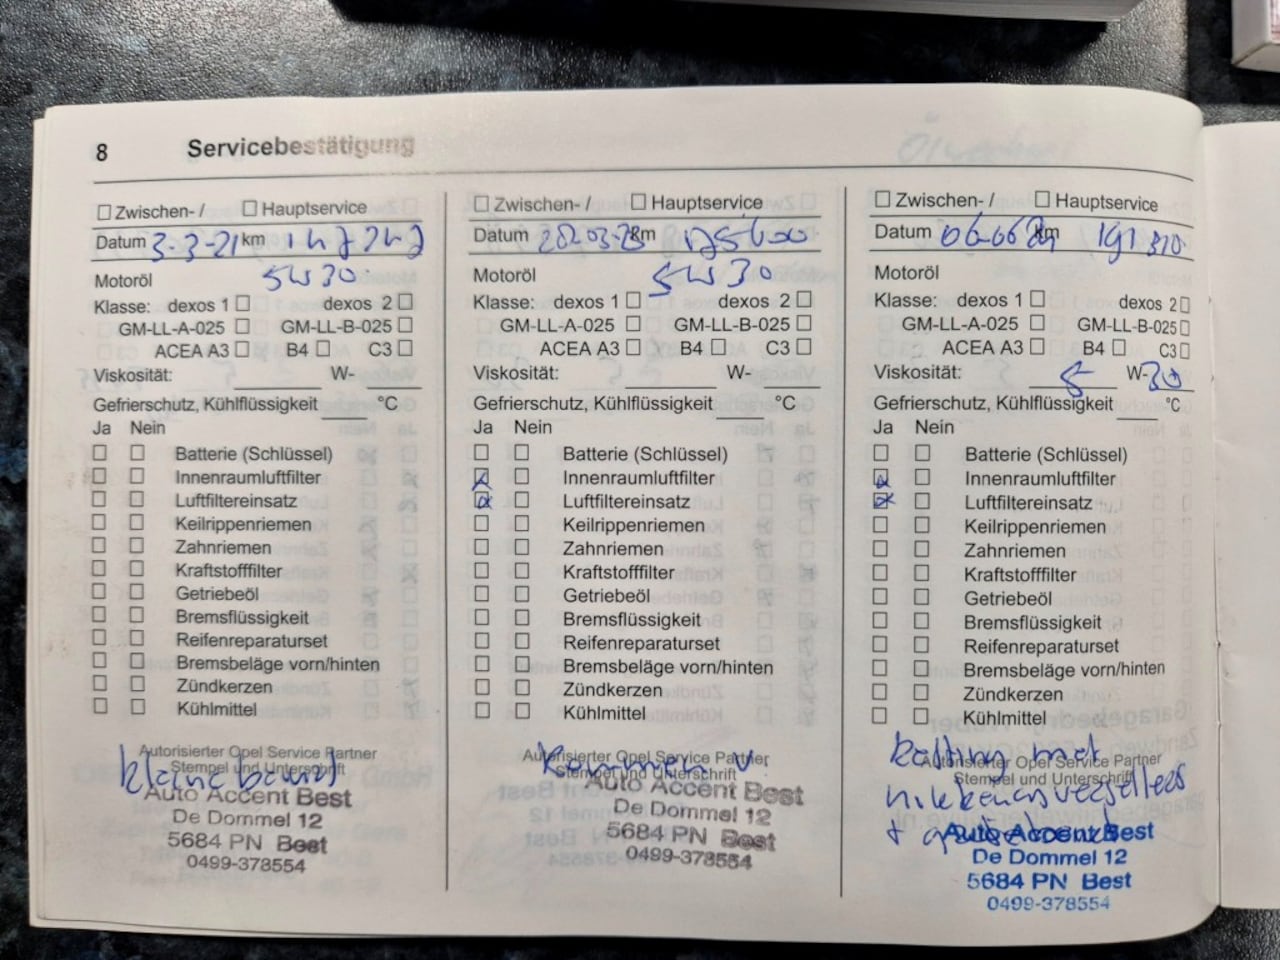 8 Servicebestätigung
☐ Zwischen- / ☐ Hauptservice
Datum 3-3-21 km
5W30
Motoröl
Klasse: dexos 1 ☐ dexos 2 ☐
GM-LL-A-025 ☐ GM-LL-B-025 ☐
ACEA A3 ☐ B4 ☐ C3 ☐
Viskosität: ______ W-______
Gefrierschutz, Kühlflüssigkeit ____ °C
Ja Nein
☐ ☐ Batterie (Schlüssel)
☐ ☐ Innenraumluftfilter
☐ ☐ Luftfiltereinsatz
☐ ☐ Keilrippenriemen
☐ ☐ Zahnriemen
☐ ☐ Kraftstofffilter
☐ ☐ Getriebeöl
☐ ☐ Bremsflüssigkeit
☐ ☐ Reifenreparaturset
☐ ☐ Bremsbeläge vorn/hinten
☐ ☐ Zündkerzen
☐ ☐ Kühlmittel
Autorisierter Opel Service Partner
Stempel und Unterschrift
kleine beurt
Auto Accent Best
De Dommel 12
5684 PN Best
0499-378554
☐ Zwischen- / ☐ Hauptservice
Datum km
Motoröl 5W30
Klasse: dexos 1 ☐ dexos 2 ☐
GM-LL-A-025 ☐ GM-LL-B-025 ☐
ACEA A3 ☐ B4 ☐ C3 ☐
Viskosität: ______ W-______
Gefrierschutz, Kühlflüssigkeit ____ °C
Ja Nein
☐ ☐ Batterie (Schlüssel)
☒ ☐ Innenraumluftfilter
☒ ☐ Luftfiltereinsatz
☐ ☐ Keilrippenriemen
☐ ☐ Zahnriemen
☐ ☐ Kraftstofffilter
☐ ☐ Getriebeöl
☐ ☐ Bremsflüssigkeit
☐ ☐ Reifenreparaturset
☐ ☐ Bremsbeläge vorn/hinten
☐ ☐ Zündkerzen
☐ ☐ Kühlmittel
Autorisierter Opel Service Partner
Stempel und Unterschrift
Auto Accent Best
De Dommel 12
5684 PN Best
0499-378554
☐ Zwischen- / ☐ Hauptservice
Datum km 191 310
Motoröl
Klasse: dexos 1 ☐ dexos 2 ☐
GM-LL-A-025 ☐ GM-LL-B-025 ☐
ACEA A3 ☐ B4 ☐ C3 ☐
Viskosität: 5 W-30
Gefrierschutz, Kühlflüssigkeit ____ °C
Ja Nein
☐ ☐ Batterie (Schlüssel)
☒ ☐ Innenraumluftfilter
☒ ☐ Luftfiltereinsatz
☐ ☐ Keilrippenriemen
☐ ☐ Zahnriemen
☐ ☐ Kraftstofffilter
☐ ☐ Getriebeöl
☐ ☐ Bremsflüssigkeit
☐ ☐ Reifenreparaturset
☐ ☐ Bremsbeläge vorn/hinten
☐ ☐ Zündkerzen
☐ ☐ Kühlmittel
Autorisierter Opel Service Partner
Stempel und Unterschrift
Auto Accent Best
De Dommel 12
5684 PN Best
0499-378554